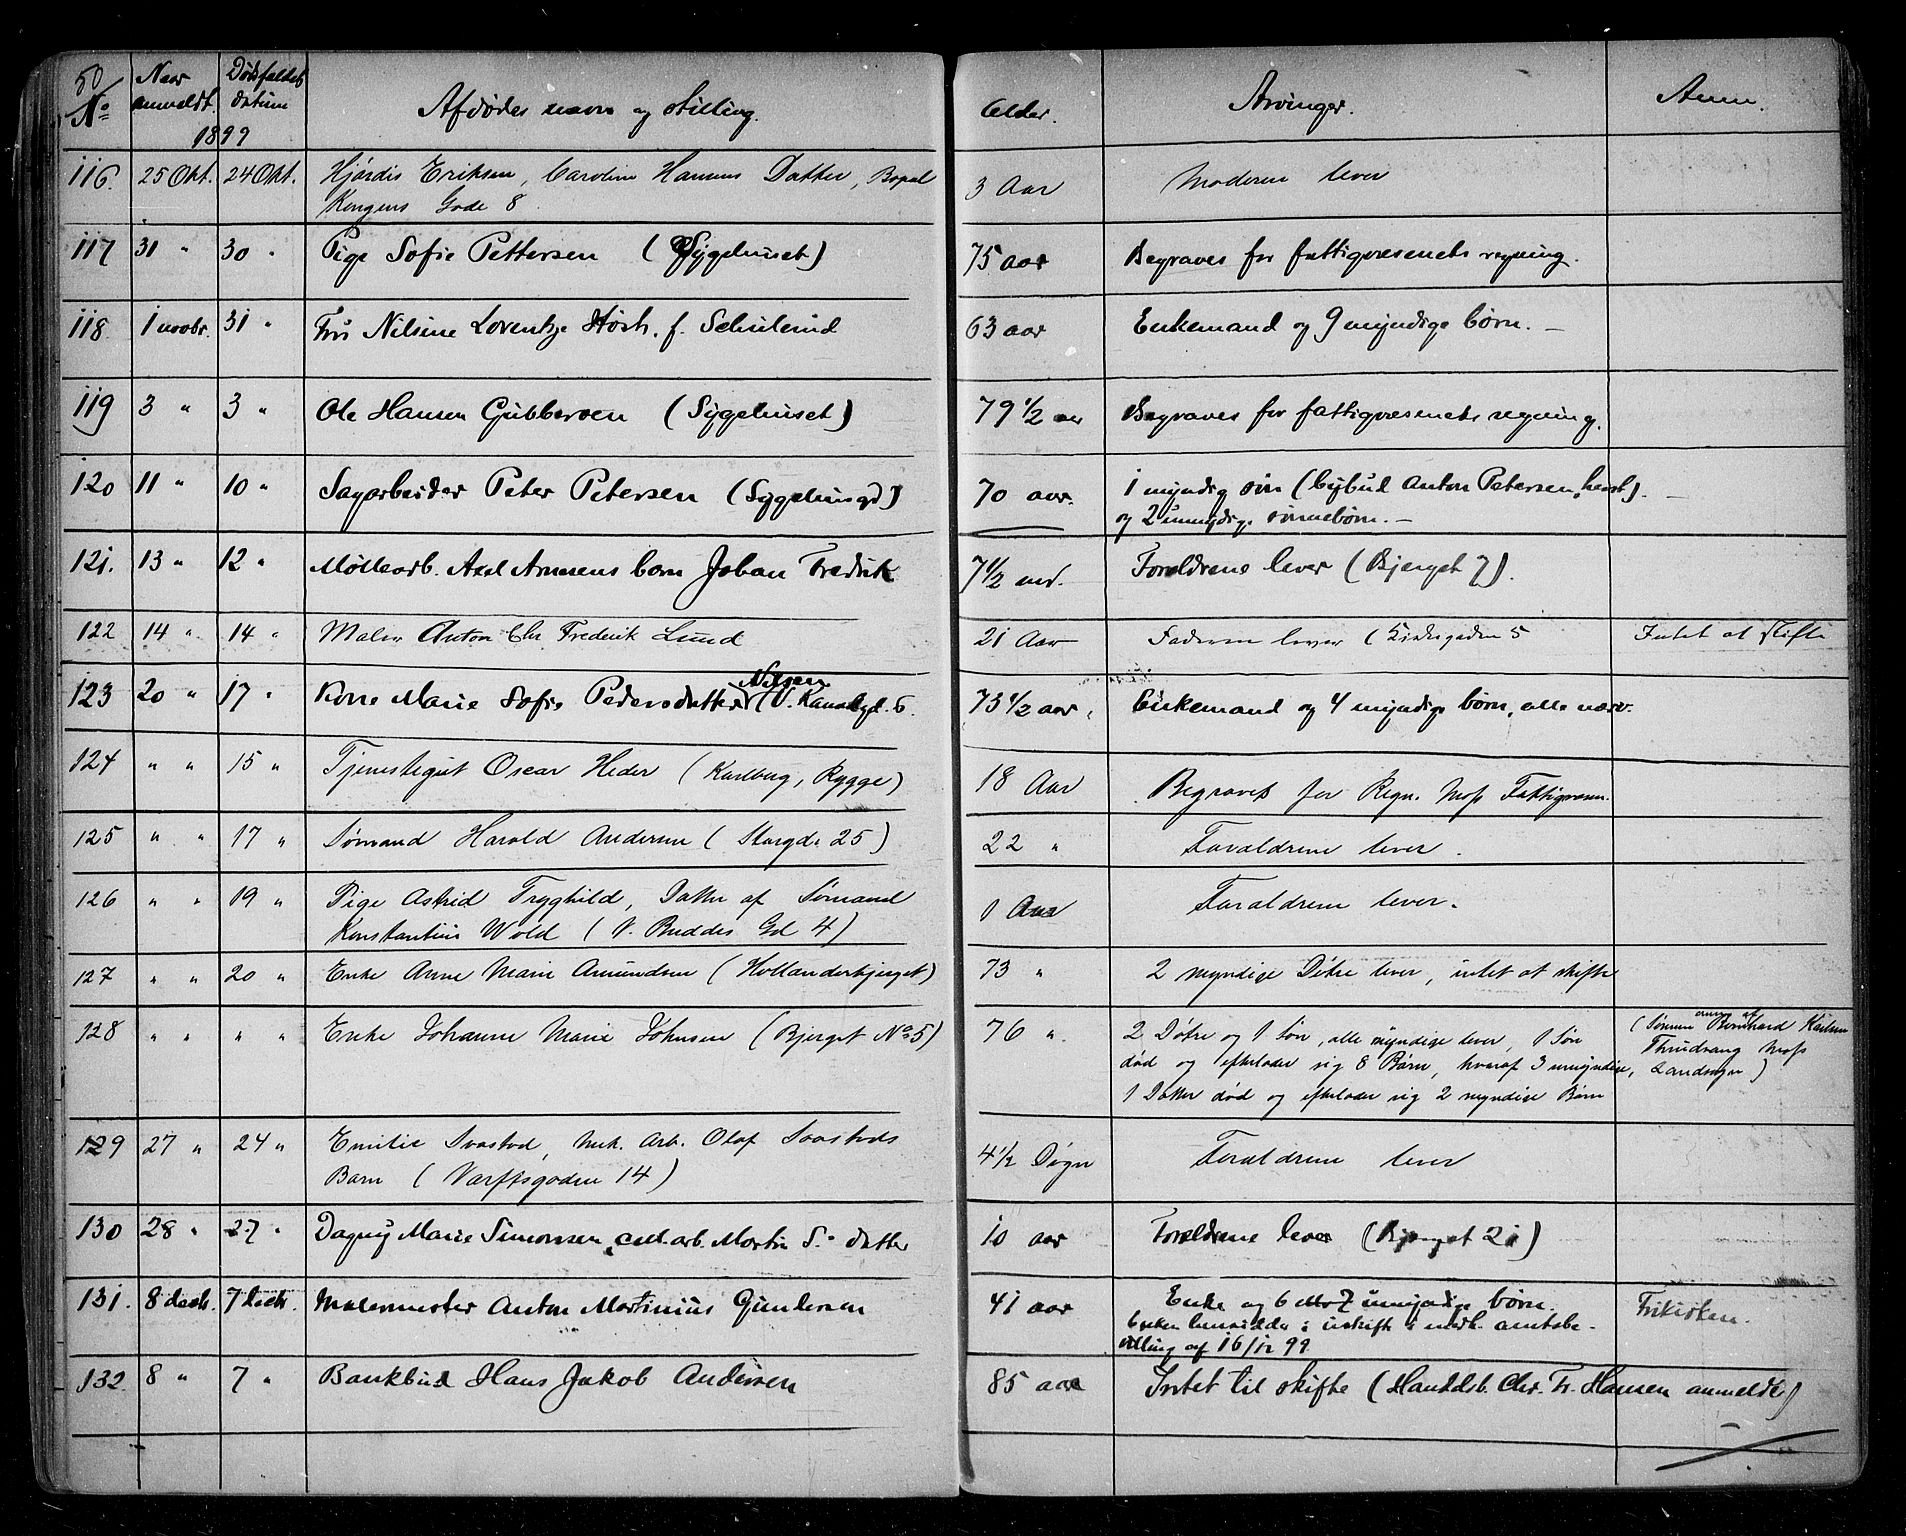 50
No Naar anmeldt. Dødsfaldets datum Afdødes navn og stilling. Alder. Arvinger. Anm.
1899
116. 25 Okt. 24 Okt. Hjørdis Eriksen, Caroline Hansens Datter, Bopæl 3 Aar Moderen lever
Kongens Gade 8
117 31 " 30 " Pige Sofie Pettersen (Sygehuset) 75 aar Begraves for fattigvæsenets regning.
118. 1 novbr. 31 " Fru Nilsine Lorentze Høst, f. Schulerud 63 aar Enkemand og 9 myndige børn. —
119 3 " 3 " Ole Hansen Gubberoen (Sygehuset) 79 1/2 aar Begraves for fattigvæsenets regning.
120 11 " 10 " Sagarbeider Peter Petersen (Sygehusgd) 70 aar. 1 myndig søn (Bybud Anton Petersen, herst). —
og 2 umyndige sønnebørn. —
121. 13 " 12 " Møllearb. Axel Arnesens barn Johan Fredrik 7 1/2 md. Forældrene lever (Bjerget 7).
122 14 " 14 " Maler Anton Chr Frederik Lund 21 Aar Faderen lever (Kirkegaden 5 Intet at skifte
123 20 " 17 " Kone Marie Sofie Pedersdatter Nilsen (V. Kanalgd. 6. 73 1/2 aar. Enkemand og 4 myndige børn, alle nærv.
124 " " 15 " Tjenestegut Oscar Heder (Karlberg, Rygge) 18 Aar Begraves for Regn. Moss Fattigvæsen.
125 " " 17 " Sømand Harald Andersen (Storgd. 25) 22 " Forældrene lever.
126 " " 19 " Pige Astrid Tryghild, Datter af Sømand 1 Aar Forældrene lever.
Konstantin Wold (V. Buddes Gd 4)
127 " " 20 " Enke Anne Marie Amundsen (Hollenderbjerget) 73 " 2 myndige Døtre lever, intet at skifte
128 " " " " Enke Johanne Marie Johnsen (Bjerget No 5) 76 ". 2 Døtre og 1 Søn, alle myndige lever, 1 Søn (Sønnen Bernhard Karlsen
død og efterlader sig 8 Børn, hvoraf 3 umyndige, Thrudvang Moss
1 Datter død og efterlader sig 2 myndige Børn Landsogn)
129 27 " 24 " Emilie Svastad, Mek. Arb. Olaf Svastads 4 1/2 Døgn Forældrene lever
Barn (Værftsgaden 14)
130 28 " 27 " Dagny Marie Simonsen, cell.arb. Martin S. datter 10 aar Forældrene lever (Bjerget 21)
131. 8 decb. 7 decb. Malermester Anton Martinius Gundersen 41 aar Enke og 6 7 umyndige børn. Frikirken.
Enken hensidder i uskifte i medh. amtsbe-
villing af 16/12 99
132. 8 " 7 " Bankbud Hans Jakob Andersen 85 aar Intet til skifte (Handelsb. Chr. Fr. Hansen anmeldte)